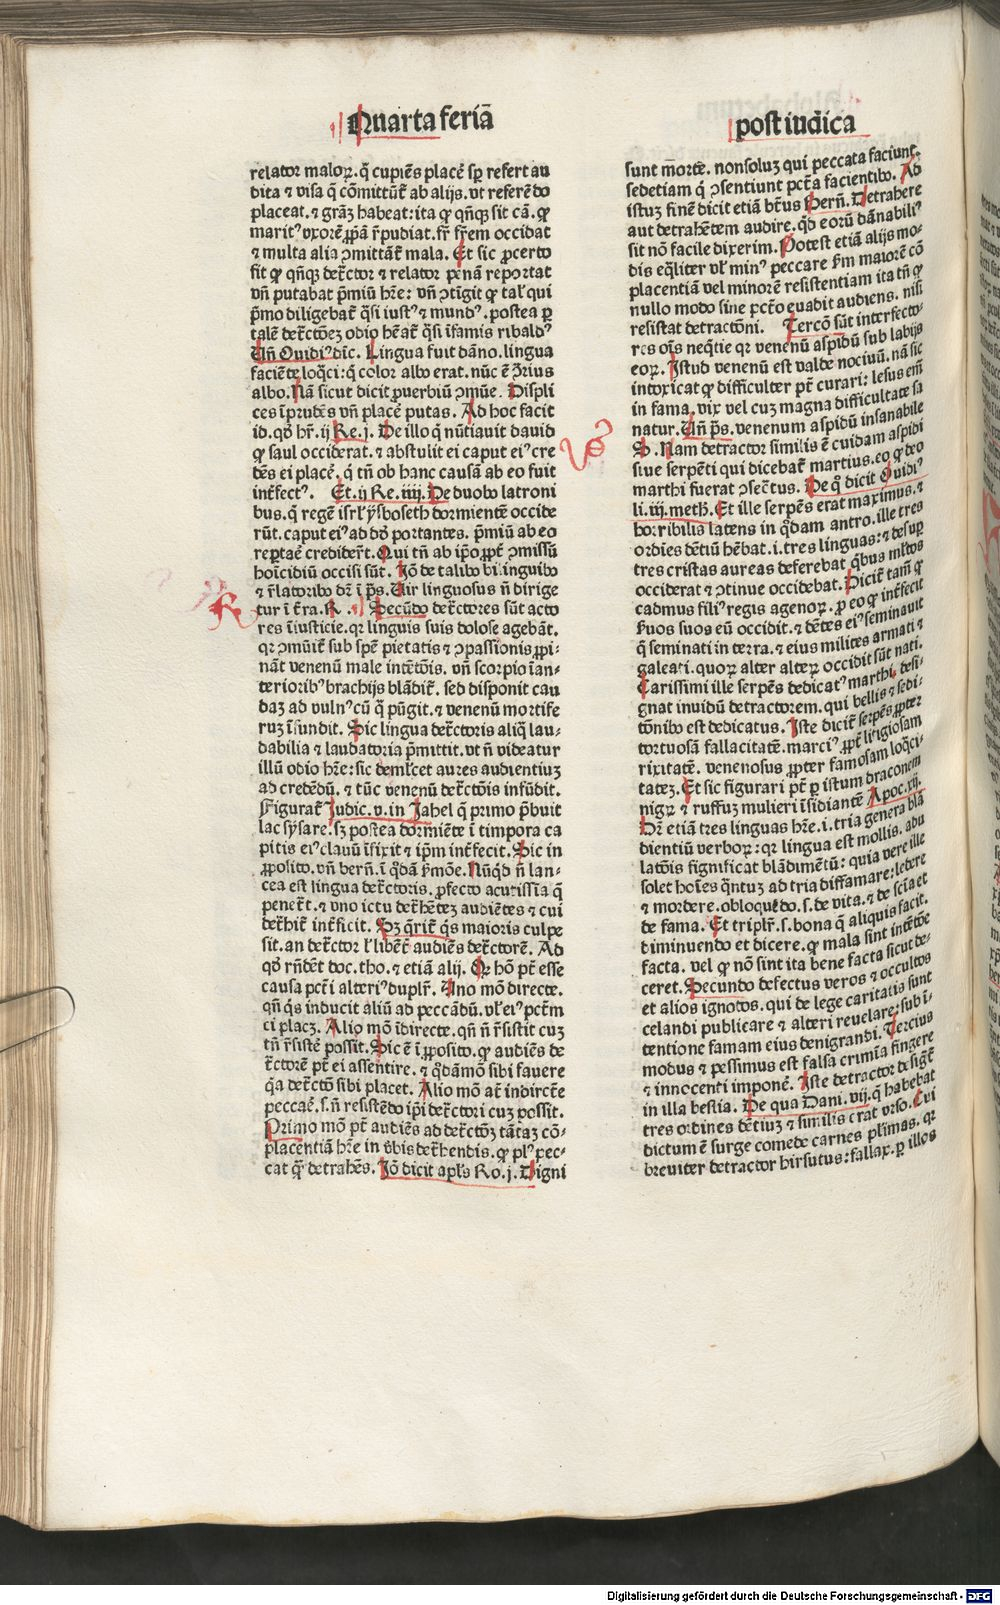 Quarta feriā
post iudica
relator maloꝝ. q̄ cupiēs placē sp̄ refert au
dita ⁊ visa q̄ cōmittūt᷑ ab alijs. vt referēdo
placeat. ⁊ gr̄aꝫ habeat: ita ꝙ qn̄qꝫ sit cā. ꝙ
maritꝰ vxorē ꝓp̄ā r̄pudiat. fr̄ fr̄em occidat
⁊ multa alia ꝯmittāt᷑ mala. Et sic ꝓcerto
fit ꝙ qn̄qꝫ det᷑ctor ⁊ relator penā reportat
vn̄ putabat p̄miū hr̄e: vn̄ ꝯtigit ꝙ tal' qui
p̄mo diligebat᷑ q̄si iustꝰ ⁊ mundꝰ. postea ꝑ
talē det᷑ctōeꝫ odio hēat᷑ q̄si īfamis ribaldꝰ
Un̄ Ouidiꝰ dīc. Lingua fuit dāno. lingua
faciēte loq̄ci: q̄ color albo erat. nūc ē ꝯ̄rius
albo. Nā sicut dicit ꝓuerbiū ꝯmūe. Displi
ces īprudēs vn̄ placē putas. Ad hoc facit
id. qd̄ hr̄. ij Re. j. De illo q̄ nūtiauit dauid
ꝙ saul occiderat. ⁊ abstulit ei caput eiꝰ cre
dēs ei placē. q̄ tn̄ ob hanc causā ab eo fuit
int᷑fectꝰ. Et. ij Re. iiij. De duobꝰ latroni
bus. q̄ regē isrl' ysboseth dormientē occide
rūt. caput eiꝰ ad dd̄ portantes. p̄miū ab eo
reꝑtaē credider̄t. Qui tn̄ ab ip̄o ꝓpt᷑ ꝯmissū
hoīcidiū occisi sūt. Iō de talibꝰ bilinguibꝰ
⁊ r̄latoribꝰ dr̄ ī ps̄. Uir linguosus n̄ dirige
tur ī t᷑ra. K. Secūdo det᷑ctores sūt acto
res īiusticie. qꝛ linguis suis dolose agebāt.
qꝛ ꝯmūit᷑ sub spē pietatis ⁊ ꝯpassionis ꝓpi-
nāt venenū male intētōis. vn̄ scorpio īan-
terioribꝰ brachijs blādit᷑. sed disponit cau
daꝫ ad vulnꝰ cū q̄ pūgit. ⁊ venenū mortife
ruꝫ īfundit. Sic lingua det᷑ctoris aliq̄ lau-
dabilia ⁊ laudatoria p̄mittit. vt n̄ videatur
illū odio hr̄e: sic demlcet aures audientiuꝫ
ad credēdū. ⁊ tūc venenū det᷑ctōis infūdit.
Figurat᷑ Judic. v. in Jahel q̄ primo p̄buit
lac sysare. sꝫ postea dormiēte ī timpora ca
pitis eiꝰ clauū īfixit ⁊ ip̄m int᷑fecit. Sic in
ꝓposito. vn̄ bern̄. ī q̄dā ẜmōe. Nūqd̄ n̄ lan-
cea est lingua det᷑ctoris. ꝓfecto acutissīa q̄
penet᷑t. ⁊ vno ictu det᷑hētes audiētes ⁊ cui
det᷑hit᷑ int᷑ficit. Sꝫ q̄rit᷑ q̄s maioris culpe
sit. an det᷑ctor l' libēt᷑ audiēs det᷑ctorē. Ad
qd̄ rn̄dēt doc. tho. ⁊ etiā alij. Qꝛ hō pt̄ esse
causa pct̄i alteriꝰ duplr̄. Uno mō directe.
qn̄ q̄s inducit aliū ad peccādū. vl' eiꝰ pct̄m
ei placꝫ. Alio mō īdirecte. qn̄ n̄ r̄sistit cuꝫ
tn̄ r̄sistē possit. Sic ē ī ꝓposito. ꝙ audiēs de
t᷑ctorē pt̄ ei assentire. ⁊ q̄dāmō sibi fauere
q̄a det᷑ctō sibi placet. Alio mō at̄ indirct̄e
peccāē. s. n̄ resistēdo ip̄i det᷑ctori cuꝫ possit.
Primo mō pt̄ audiēs ad det᷑ctōꝫ tātaꝫ cō-
placentiā hr̄e in v̄bis det᷑hendis. ꝙ plꝰ pec-
cat q̄ꝫ detrahēs. Iō dicit apl's Ro. j. Digni
sunt mōrte. nonsoluꝫ qui peccata faciunt.
sedetiam q̄ ꝯsentiunt pct̄a facientibꝰ. Ad
istuꝫ finē dicit etiā bt̄us Bern̄. Detrahere
aut detrahētem audire. qd̄ eorū dānabiliꝰ
sit nō facile dixerim. Potest etiā alijs mo-
dis eq̄liter vl' minꝰ peccare ẜm maiorē cō
placentiā vel minorē resistentiam ita tn̄ ꝙ
nullo modo sine pct̄o euadit audiens. nisi
resistat detractōni. Tercō sūt interfecto-
res oīs neq̄tie qꝛ venenū aspidū sub labijs
eoꝝ. Istud venenū est valde nociuū. nā sic
intoxicat ꝙ difficulter pt̄ curari: lesus em̄
in fama. vix vel cuꝫ magna difficultate sa
natur. Un̄ ps̄. venenum aspidū insanabile
D. Nam detractor similis ē cuidam aspidi
siue serpēti qui dicebat᷑ martius. eo ꝙ deo
marthi fuerat ꝯsectus. De q̄ dicit Ouidiꝰ
li. iij. meth̄. Et ille serpēs erat maximus. ⁊
horribilis latens in q̄dam antro. ille tres
ordies dētiū hēbat. i. tres linguas: ⁊ desuꝑ
tres cristas aureas deferebat q̄bus ml'tos
occiderat ⁊ ꝯtinue occidebat. Dicit᷑ tam̄ ꝙ
cadmus filiꝰ regis agenoꝝ. ꝓ eo ꝙ int᷑fecit
ẜuos suos eū occidit. ⁊ dētes eiꝰ seminauit
q̄ seminati in terra. ⁊ eius milites armati ⁊
galeati. quoꝝ alter alteꝝ occidit sūt nati.
Carissimi ille serpēs dedicatꝰ marthi. desi-
gnat inuidū detractorem. qui bellis ⁊ sedi-
tōnibꝰ est dedicatus. Iste dicit᷑ serpēs ꝓpter
tortuosā fallacitatē. marciꝰ ꝓpt᷑ litigiosam
rixitatē. venenosus ꝓpter famosam loq̄ci-
tateꝫ. Et sic figurari pt̄ ꝑ istum draconem
nigꝝ ⁊ ruffuꝫ mulieri īsidiantē Apoc. xij.
Dr̄ etiā tres linguas hr̄e. i. tria genera blā
dientiū verboꝝ: qꝛ lingua est mollis. adu
latōis significat blādimētū: quia vere ille
solet hoīes q̄ntuꝫ ad tria diffamare: ledere
⁊ mordere. obloquēdo. s. de vita. ⁊ de scīa et
de fama. Et triplr̄. s. bona q̄ aliquis facit.
diminuendo et dicere. ꝙ mala sint intētōe
facta. vel ꝙ nō sint ita bene facta sicut de-
ceret. Secundo defectus veros ⁊ occultos
et alios ignotos. qui de lege caritatis sunt
celandi publicare ⁊ alteri reuelare: sub ī-
tentione famam eius denigrandi. Tercius
modus ⁊ pessimus est falsa crimīa fingere
⁊ innocenti imponē. Iste detractor desigt᷑
in illa bestia. De qua Dani. vij. q̄ habebat
tres ordines dētiuꝫ ⁊ similis erat vrso. Cui
dictum ē surge comede carnes pl'imas. qꝛ
breuiter detractor hirsutus: fallax. ꝑ illos
Digitalisierung gefördert durch die Deutsche Forschungsgemeinschaft - DFG